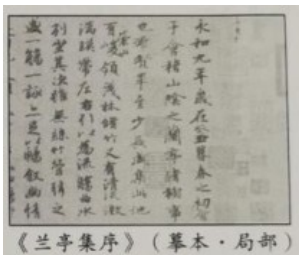 永和九年歲在癸丑暮春之初會
于會稽山陰之蘭亭脩稧事
也羣賢畢至少長咸集此地
有崇山峻領茂林脩竹又有清流激
湍暎帶左右引以為流觴曲水
列坐其次雖無絲竹管弦之
盛一觴一詠亦足以暢敘幽情
《兰亭集序》（摹本·局部）